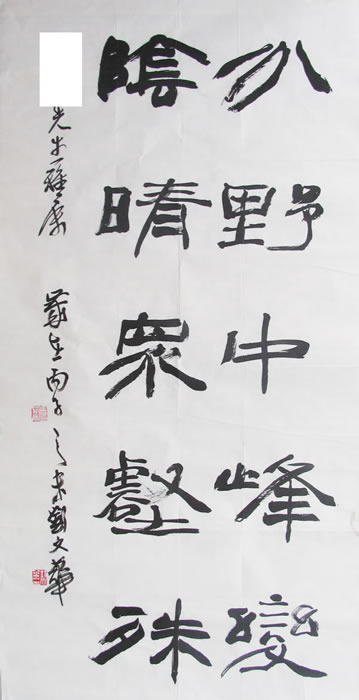 分野中峰變
陰晴眾壑殊
先生雅屬
歲在丙子之劉文華